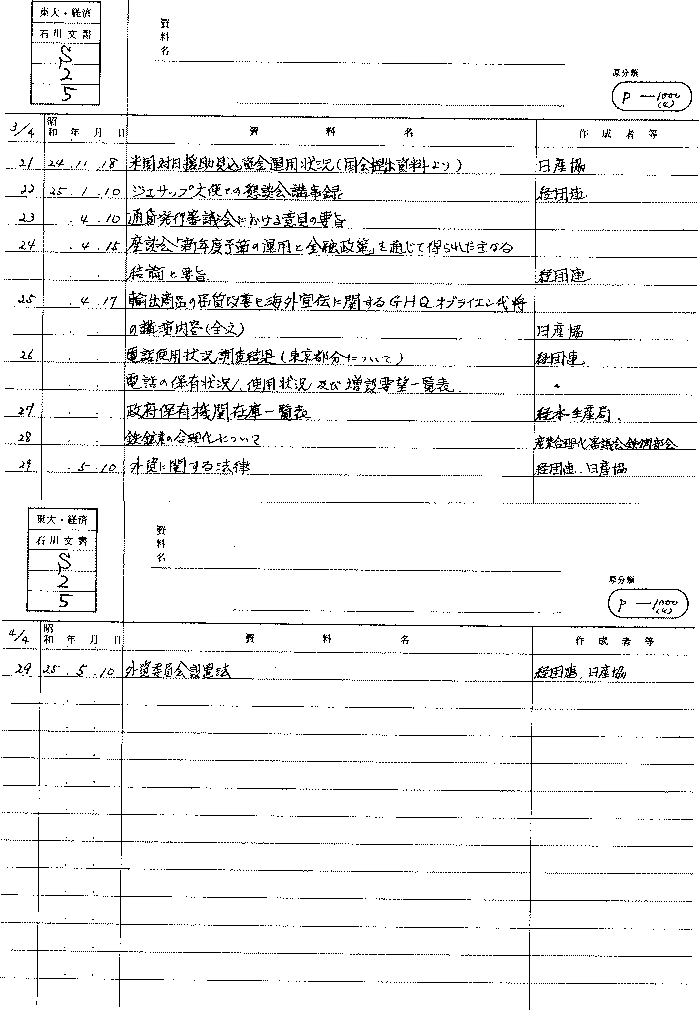 東大・経済
石川文書
S
2
5
資料名
原分類
P-1000
(4)
3/4 昭和 年 月 日 資料名 作成者等
21 24.11.18 米国対日援助見返資金運用状況(国会提出資料より) 日産協
22 25.1.10 ジェサップ大使との懇談会議事録 経団連
23 .4.10 通貨発行審議会における意見の要旨
24 .4.15 座談会「新年度予算の運用と金融政策」を通じて得られた主なる
結論と要旨 経団連
25 .4.17 輸出商品の品質改善と海外宣伝に関するGHQオブライエン代将
の講演内容(全文) 日産協
26 電話使用状況調査結果(東京都分について) 経団連
電話の保有状況、使用状況及び増設要望一覧表 〃
27 政府保有機関在庫一覧表 経本生産局.
28 鉄鋼業の合理化について 産業合理化審議会鉄鋼部会
29 .5.10 外資に関する法律 経団連.日産協
東大・経済
石川文書
S
2
5
資料名
原分類
P-1000
(4)
4/4 昭和 年 月 日 資料名 作成者等
29 25.5.10 外資委員会設置法 経団連.日産協